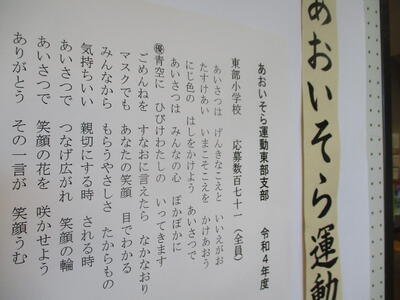 あおいそら運動
あおいそら運動東部支部　令和４年度
東部小学校　応募数百七十一（全員）
あいさつは　げんきなこえと　いいえがお
たすけあい　いまこそこえを　かけあおう
にじ色の　はしをかけよう　あいさつで
あいさつは　みんなの心　ぽかぽかに
㊝青空に　ひびけわたしの　いってきます
ごめんねを　すなおに言えたら　なかなおり
マスクでも　あなたの笑顔　目でわかる
みんなから　もらうやさしさ　たからもの
気持ちいい　親切にする時　される時
あいさつで　つなげ広がれ　笑顔の輪
あいさつで　笑顔の花を　咲かせよう
ありがとう　その一言が　笑顔うむ